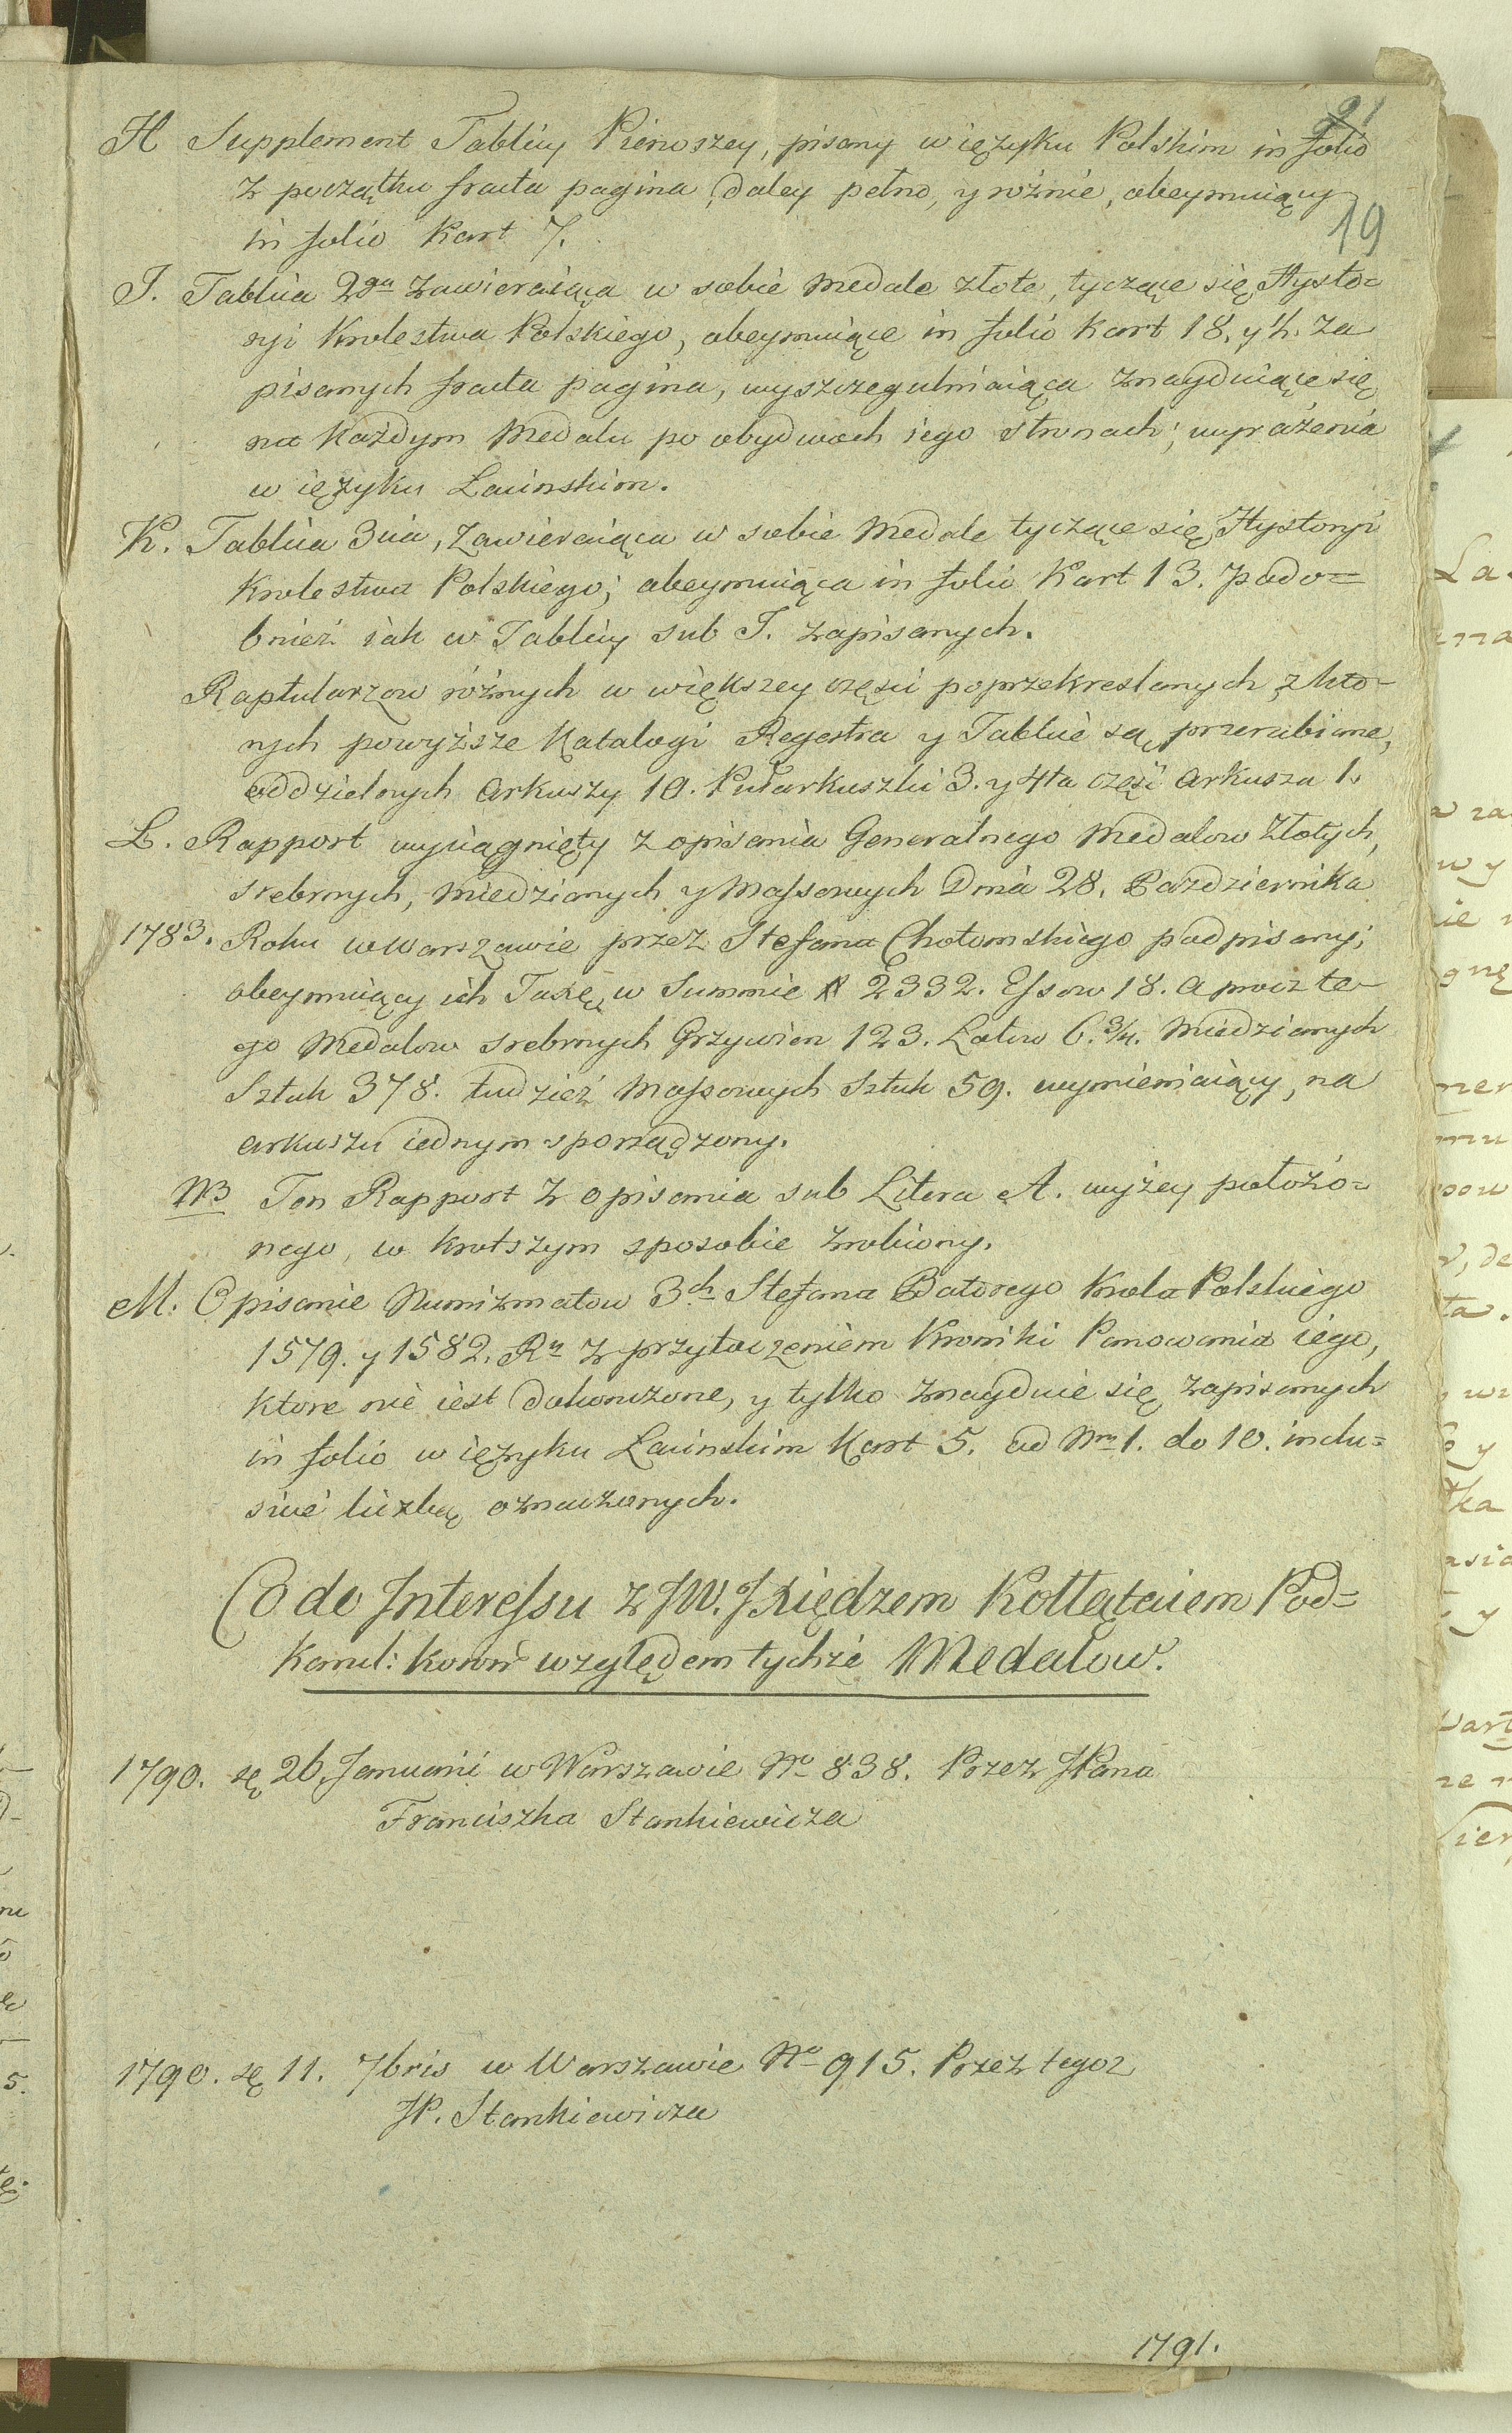 21
H Supplement Tablicy Pierwszey, pisany w ięzyku Polskim in folio
z początku fracta pagina, daley pełno, y rożnie, obeymuiący
19
in folio Kart 7.
I. Tablica 2ga zawieraiąca w sobie Medale złote, tyczące się Hysto=
ryi Krolestwa Polskiego, obeymuiące in folio Kart 18. y ½. za
pisanych fracta pagina, wyszczegulniaiąca znayduiące się
na Każdym Medalu po obydwoch iego stronach; wyrażenia
w ięzyku Łacinskim.
K. Tablica 3cia, zawieraiąca w sobie Medale tyczące się Hystoryi
Krolestwa Polskiego; obeymuiąca in folio Kart 13. podo=
bnież iak w Tablicy sub I. zapisanych.
Raptularzow różnych w większey części poprzekreslanych, z kto-
rych powyższe Katalogi Regestra y Tablice są przerabiane,
oddzielnych arkuszy 10. Pułarkuszki 3. y 4ta część arkusza 1.
L. Rapport wyciągnięty z opisania Generalnego Medalow Złotych,
srebrnych, miedzianych y Massowych Dnia 28. Pazdziernika
1783. Roku w Warszawie przez Stefana Chotomskiego podpisany;
obeymuiący ich Taxę, w Summie # 2332. Essow 18. a procz te-
go Medalow srebrnych Grzywien 123. Łotow 6.¾. Miedzianych
Sztuk 378. tudzież Massowych Sztuk 59. wymieniaiący, na
arkuszu iednym sporządzony.
NB Ten Rapport z opisania sub Litera A. wyżey położo=
nego, w krotszym sposobie zrobiony.
M. Opisanie Numizmatow 3ch Stefana Batorego Krola Polskiego
1579. y 1582. Ru z przytoczeniem Kroniki Panowania iego,
ktore nie iest dokonczone, y tylko znayduie się zapisanych
in folio w ięzyku Łacinskim Kart 5. od Nru 1. do 10. inclu=
sive liczbą oznaczonych.
Co do Interessu z JW. J Xiędzem Kołłątaiem Pod=
Kancl: Koron względem tychże Medalow.
1790. 26. Januarii w Warszawie No 838. Przez JPana
Franciszka Stankiewicza
1790. 11. 7bris w Warszawie No 915. Przez tegoz
JP. Stankiewicza
1791.